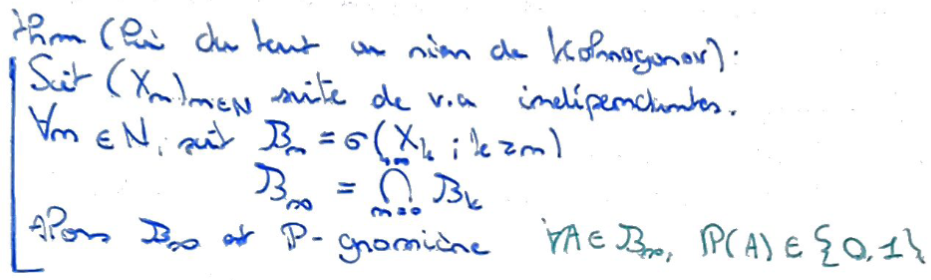 Thm (Loi du tout ou rien de Kolmogorov):
Soit (Xn)n∈N suite de v.a indépendantes.
∀n ∈ N, soit Bn = σ(Xk ; k ≥ n)
B∞ = ⋂_{n=0}^{+∞} Bk
Alors B∞ est P-grossière ∀A ∈ B∞, P(A) ∈ {0,1}